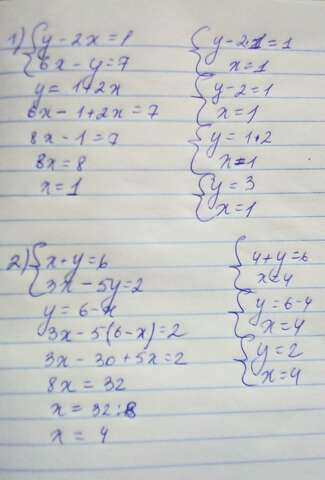 1) { y - 2x = 1
6x - y = 7
y = 1 + 2x
6x - 1 + 2x = 7
8x - 1 = 7
8x = 8
x = 1
{ y - 2·1 = 1
x = 1
{ y - 2 = 1
x = 1
{ y = 1 + 2
x = 1
{ y = 3
x = 1
2) { x + y = 6
3x - 5y = 2
y = 6 - x
3x - 5(6 - x) = 2
3x - 30 + 5x = 2
8x = 32
x = 32 : 8
x = 4
{ 4 + y = 6
x = 4
{ y = 6 - 4
x = 4
{ y = 2
x = 4